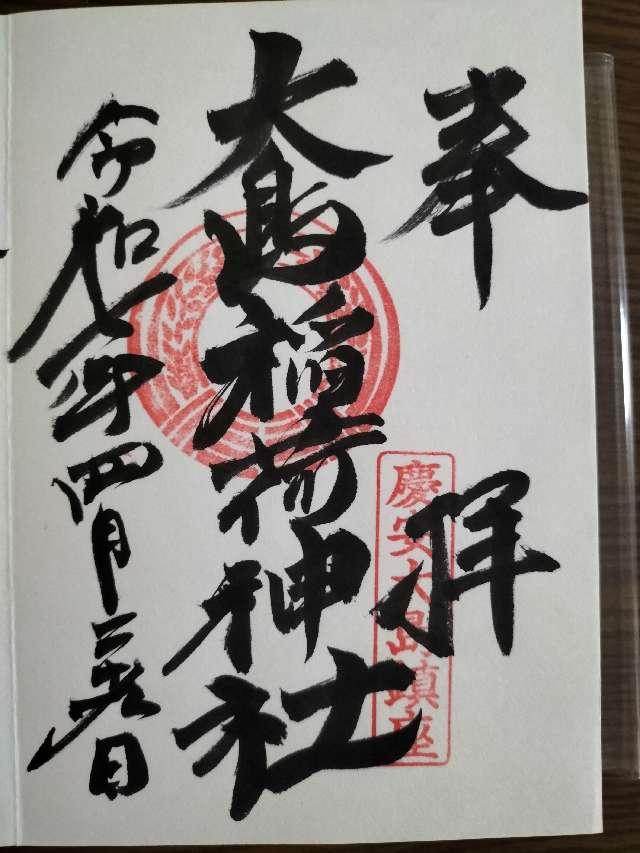 奉拝
慶安大島鎮座
大島稲荷神社
令和七年四月二十九日